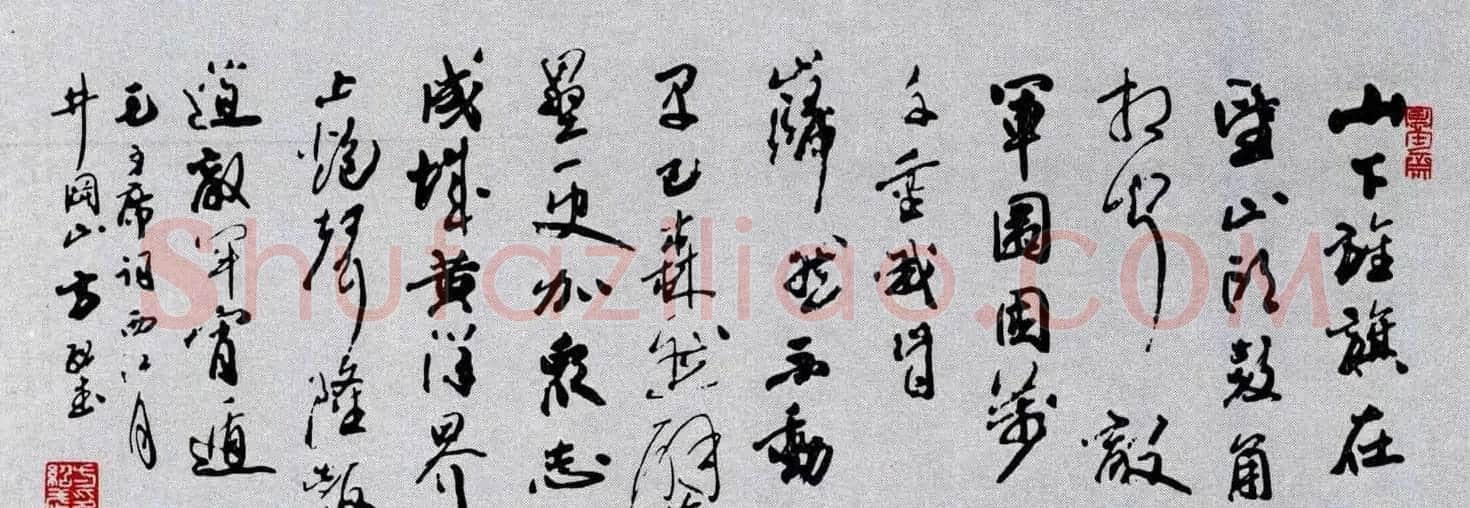 山下旌旗在
望山頭鼓角
相聞敵
軍圍困萬
千重我自
巋然不動
早已森嚴壁
壘更加衆志
成城黄洋界
上炮聲隆報
道敵軍宵遁
毛主席詞西江月
井岡山方書
Shufaziliao.COM